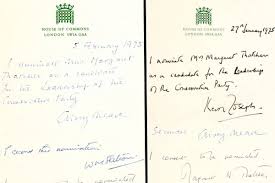 HOUSE OF COMMONS
LONDON SW1A 0AA
5 February 1975
I nominate Mrs Margaret
Thatcher as a candidate
in the Leadership of the
Conservative Party
Airey Neave
I second this nomination
HOUSE OF COMMONS
LONDON SW1A 0AA
27th January 1975
I nominate Mrs Margaret Thatcher
as a candidate for the Leadership
of the Conservative Party.
Keith Joseph
Seconder Airey Neave
I consent to be nominated
Margaret H. Thatcher